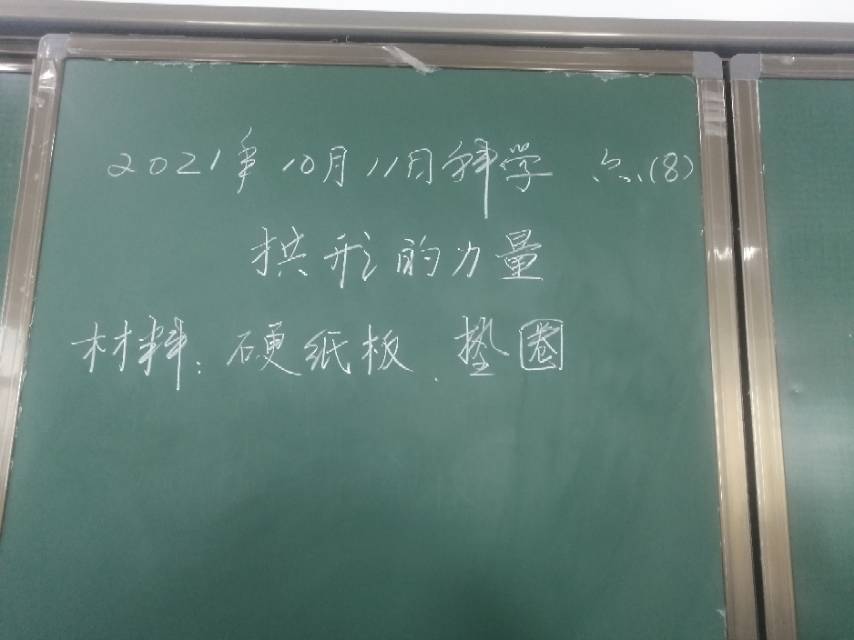 2021年10月11日科学 六、(8)
拱形的力量
材料:硬纸板、垫圈